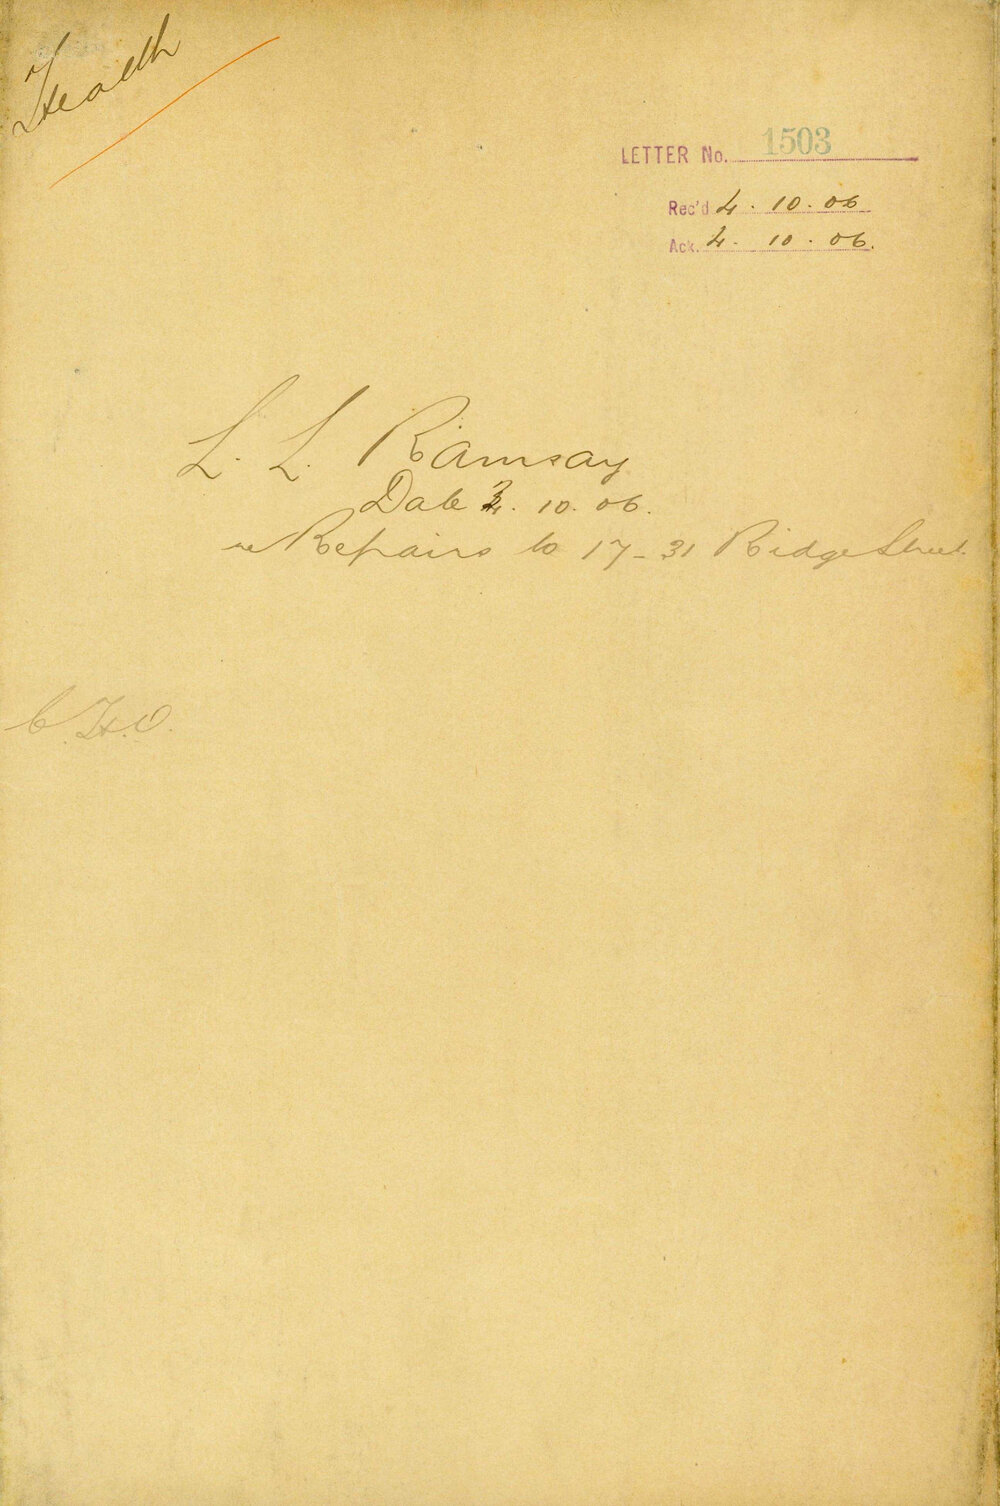 Health
LETTER No. 1503
Rec'd 4. 10. 06
Ack. 4. 10. 06.
L. L. Ramsay
Date 3. 10. 06.
re Repairs to 17-31 Ridge Street
C.H.O.